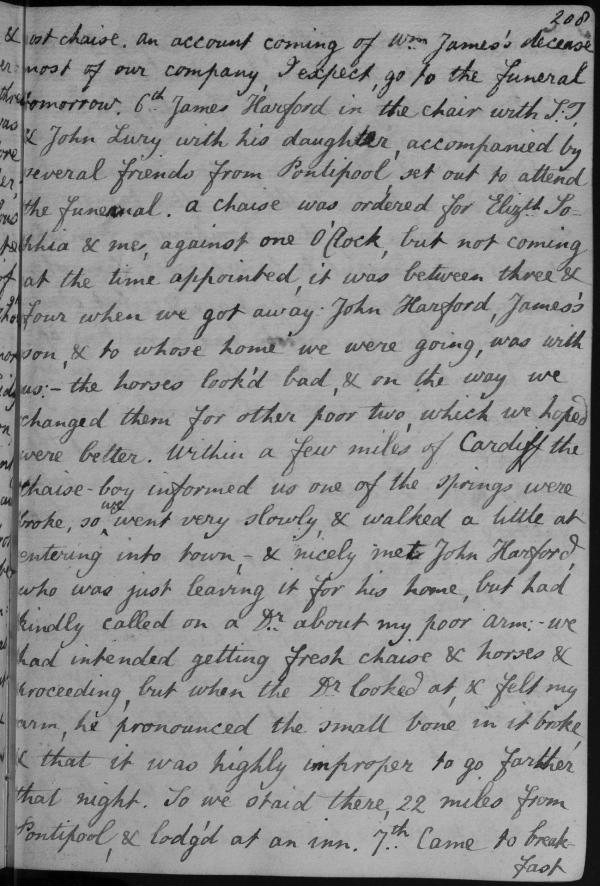 208
post chaise. an account coming of Wm. James's decease
most of our company, I expect, go to the funeral
tomorrow. 6th James Harford in the chair with S:T.
& John Lury with his daughter, accompanied by
several friends from Pontipool, set out to attend
the funeral. a chaise was ordered for Elizth. So=
phia & me, against one O'Clock, but not coming
at the time appointed, it was between three &
four when we got away: John Harford, James's
son, & to whose home we were going, was with
us:- the horses look'd bad, & on the way we
changed them for other poor two, which we hoped
were better. Within a few miles of Cardiff the
chaise-boy informed us one of the springs were
broke, so we went very slowly, & walked a little at
entering into town,- & nicely met John Harford,
who was just leaving it for his home, but had
kindly called on a Dr. about my poor arm:- we
had intended getting fresh chaise & horses &
proceeding, but when the Dr. looked at, & felt my
arm, he pronounced the small bone in it broke,
& that it was highly improper to go farther
that night. So we staid there, 22 miles from
Pontipool, & lodg'd at an inn. 7th. Came to break-
fast